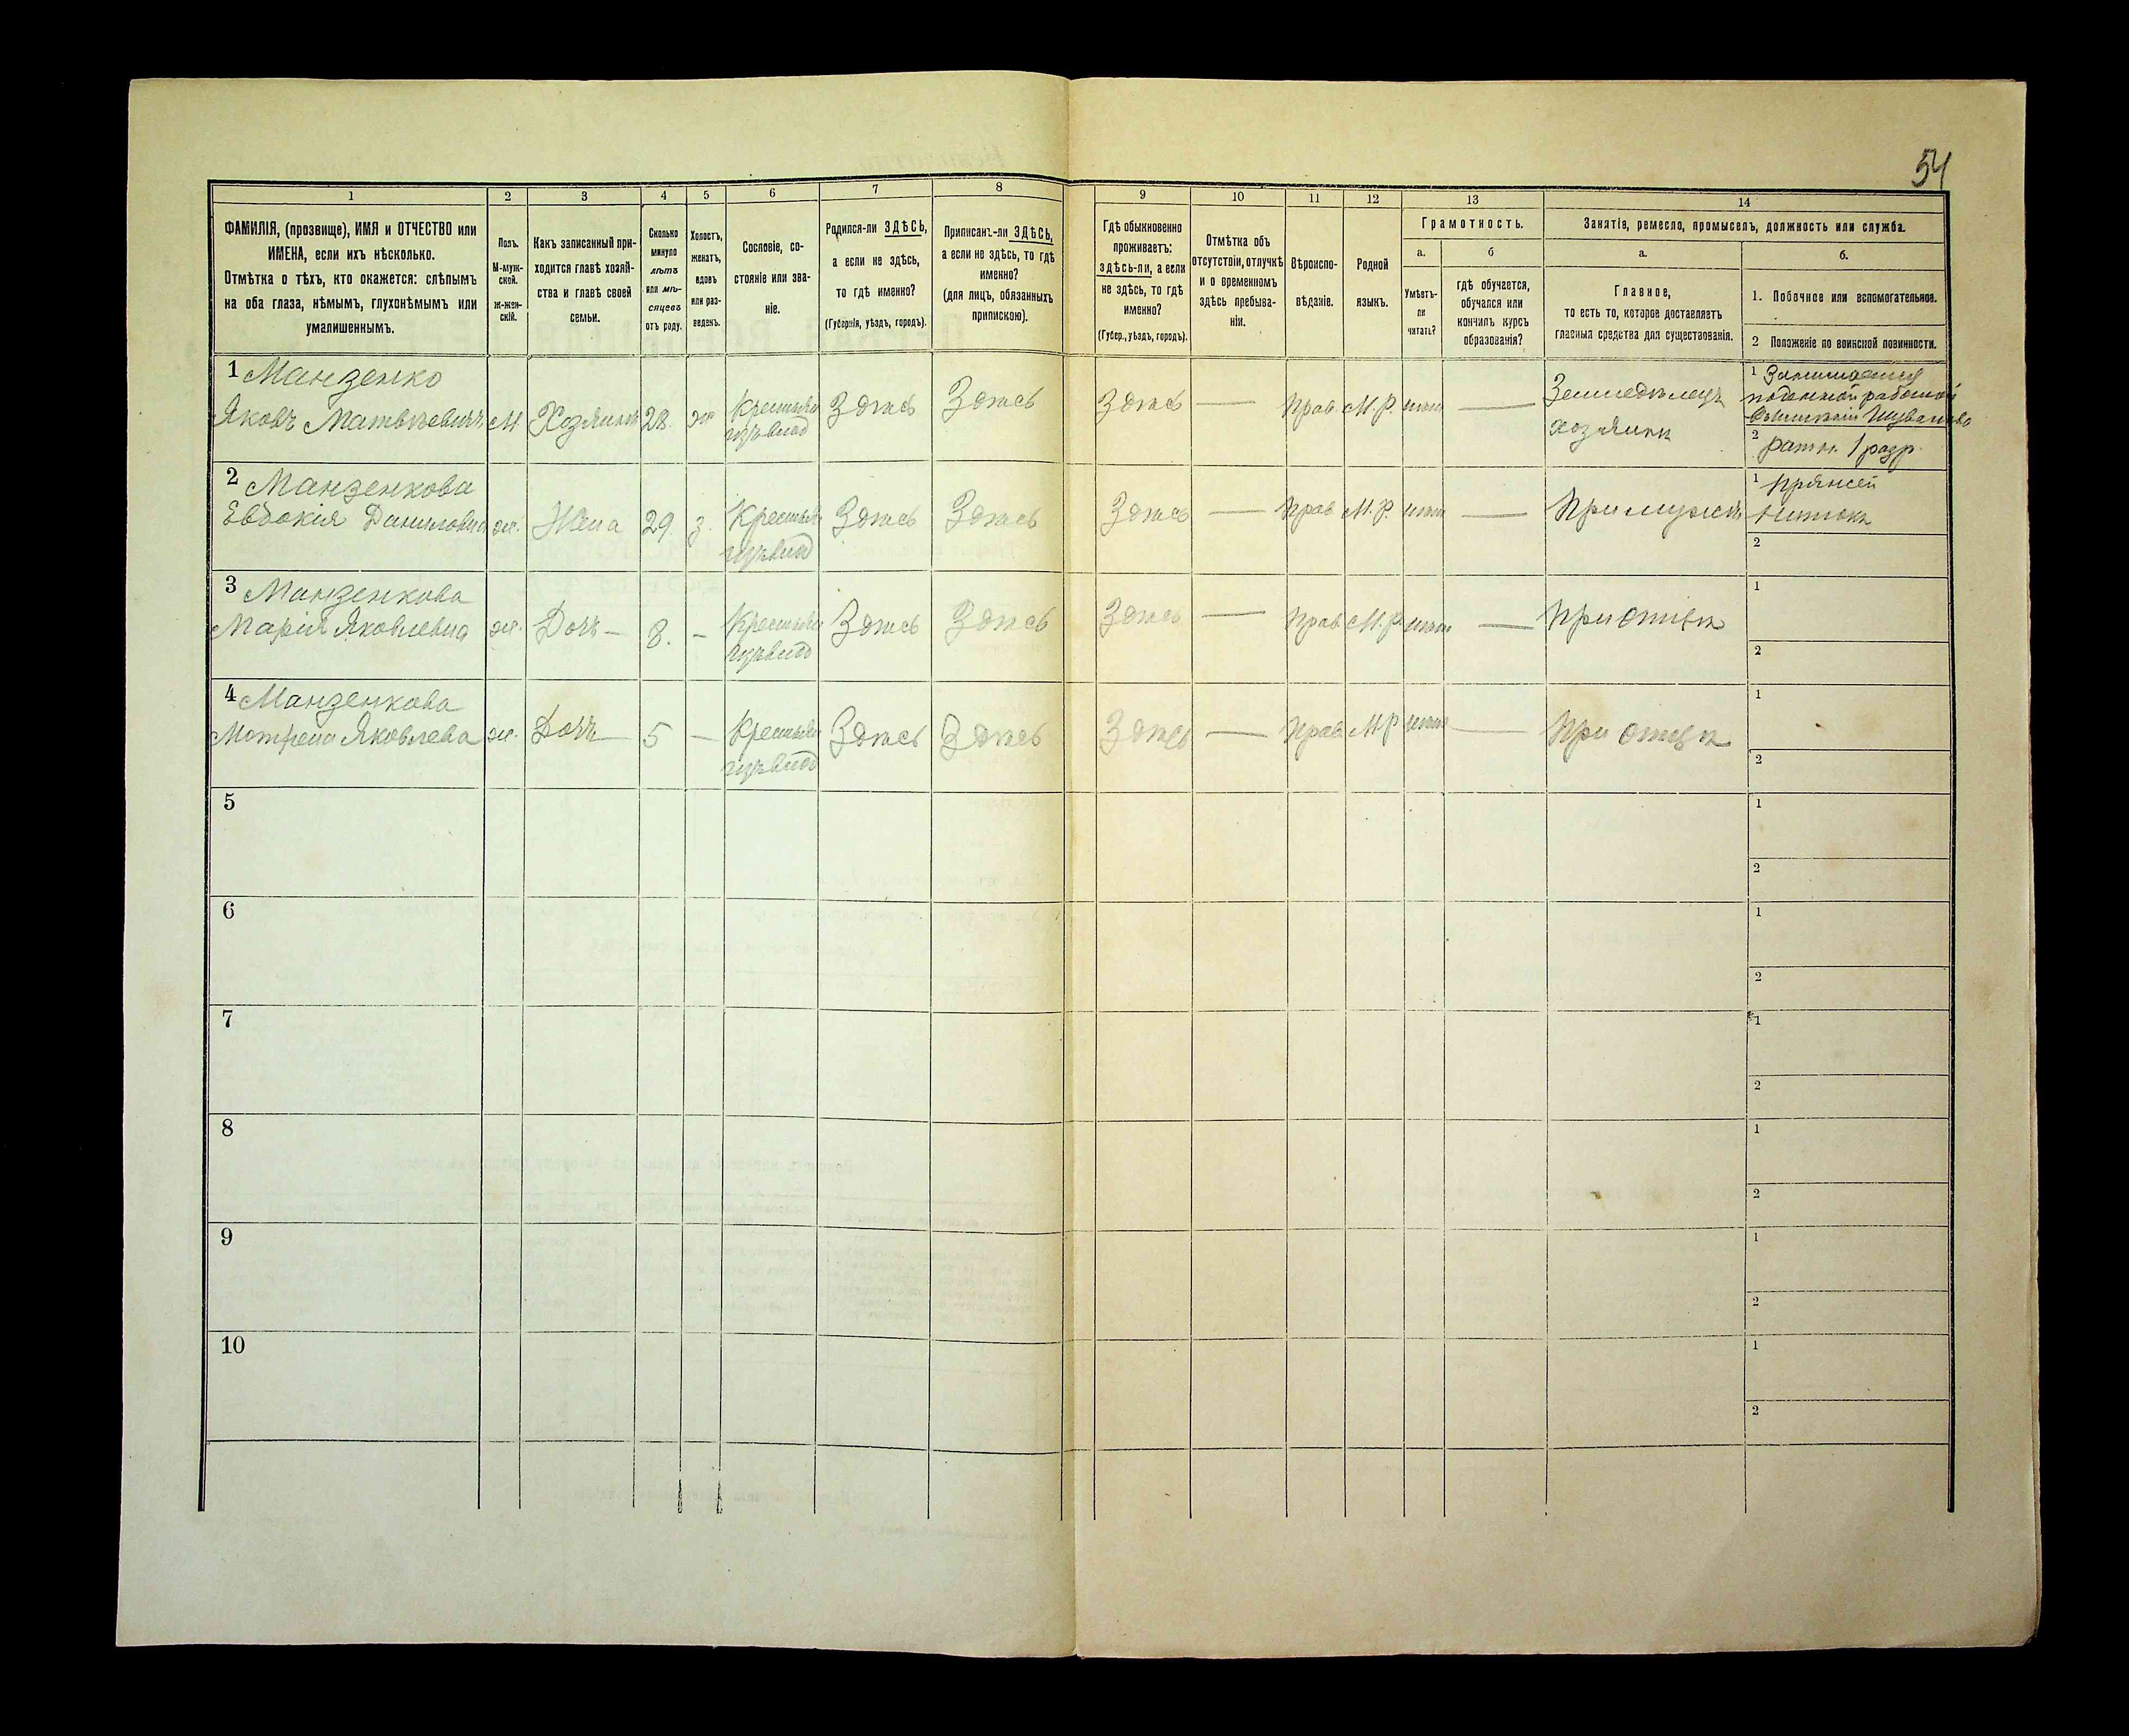 54
1 2 3 4 5 6 7 8 9 10 11 12 13 14
ФАМИЛІЯ, (прозвище), ИМЯ и ОТЧЕСТВО или
ИМЕНА, если ихъ нѣсколько.
Отмѣтка о тѣхъ, кто окажется: слѣпымъ
на оба глаза, нѣмымъ, глухонѣмымъ или
умалишеннымъ.
Полъ.
М-муж-
ской.
ж-жен-
скій.
Какъ записанный при-
ходится главѣ хозяй-
ства и главѣ своей
семьи.
Сколько
минуло
лѣтъ
или мѣ-
сяцевъ
отъ роду.
Холостъ,
женатъ,
вдовъ
или раз-
веденъ.
Сословіе, со-
стояніе или зва-
ніе.
Родился-ли ЗДѢСЬ,
а если не здѣсь,
то гдѣ именно?
(Губернія, уѣздъ, городъ).
Приписанъ-ли ЗДѢСЬ,
а если не здѣсь, то гдѣ
именно?
(для лицъ, обязанныхъ
припискою).
Гдѣ обыкновенно
проживаетъ:
здѣсь-ли, а если
не здѣсь, то гдѣ
именно?
(Губер., уѣздъ, городъ).
Отмѣтка объ
отсутствіи, отлучкѣ
и о временномъ
здѣсь пребыва-
ніи.
Вѣроиспо-
вѣданіе.
Родной
языкъ.
Грамотность.
а.
Умѣетъ-
ли
читать?
б
гдѣ обучается,
обучался или
кончилъ курсъ
образованія?
Занятіе, ремесло, промыселъ, должность или служба.
а.
Главное,
то есть то, которое доставляетъ
главныя средства для существованія.
б.
1. Побочное или вспомогательное.
2 Положеніе по воинской повинности.
1 Манзенко
Яковъ Матвѣевичъ М. Хозяинъ 28. ж Крестьян Здѣсь Здѣсь Здѣсь — Прав. М.Р. нѣтъ — Земледѣлецъ
хозяинъ
1 Занимается
поденной работой
2 ратн. 1 разр.
2 Манзенкова
Евдокія Даниловна ж. Жена 29. з. Крестьян Здѣсь Здѣсь Здѣсь — Прав М.Р. нѣтъ — При мужѣ
1 Пряжей
нитокъ
2
3 Манзенкова
Марія Яковлевна ж. Дочь — 8. — Крестьян Здѣсь Здѣсь Здѣсь — Прав М.Р. нѣтъ — При отцѣ
1
2
4 Манзенкова
Мотрена Яковлева ж. Дочь — 5 — Крестьян Здѣсь Здѣсь Здѣсь — Прав М.Р нѣтъ — При отцѣ
1
2
5
1
2
6
1
2
7
1
2
8
1
2
9
1
2
10
1
2